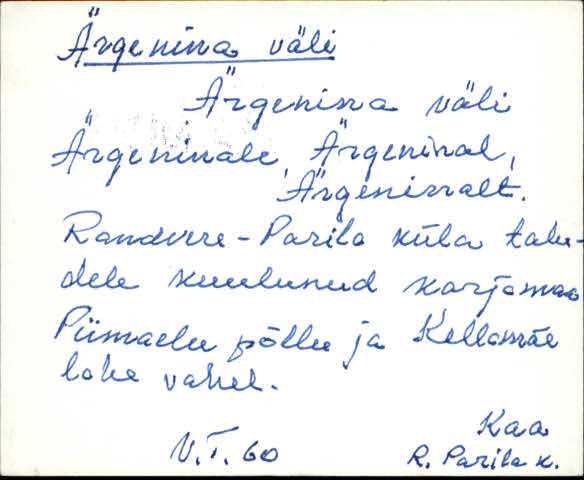 Ärgenina väli
Ärgenina väli
Ärgeninale, Ärgeninal,
Ärgeninalt.
Randvere-Parila küla talu-
dele kuulunud karjamaa
Piimaelu põllu ja Kellamäe
lohe vahel.
V.T. 60
Kaa
R. Parila k.